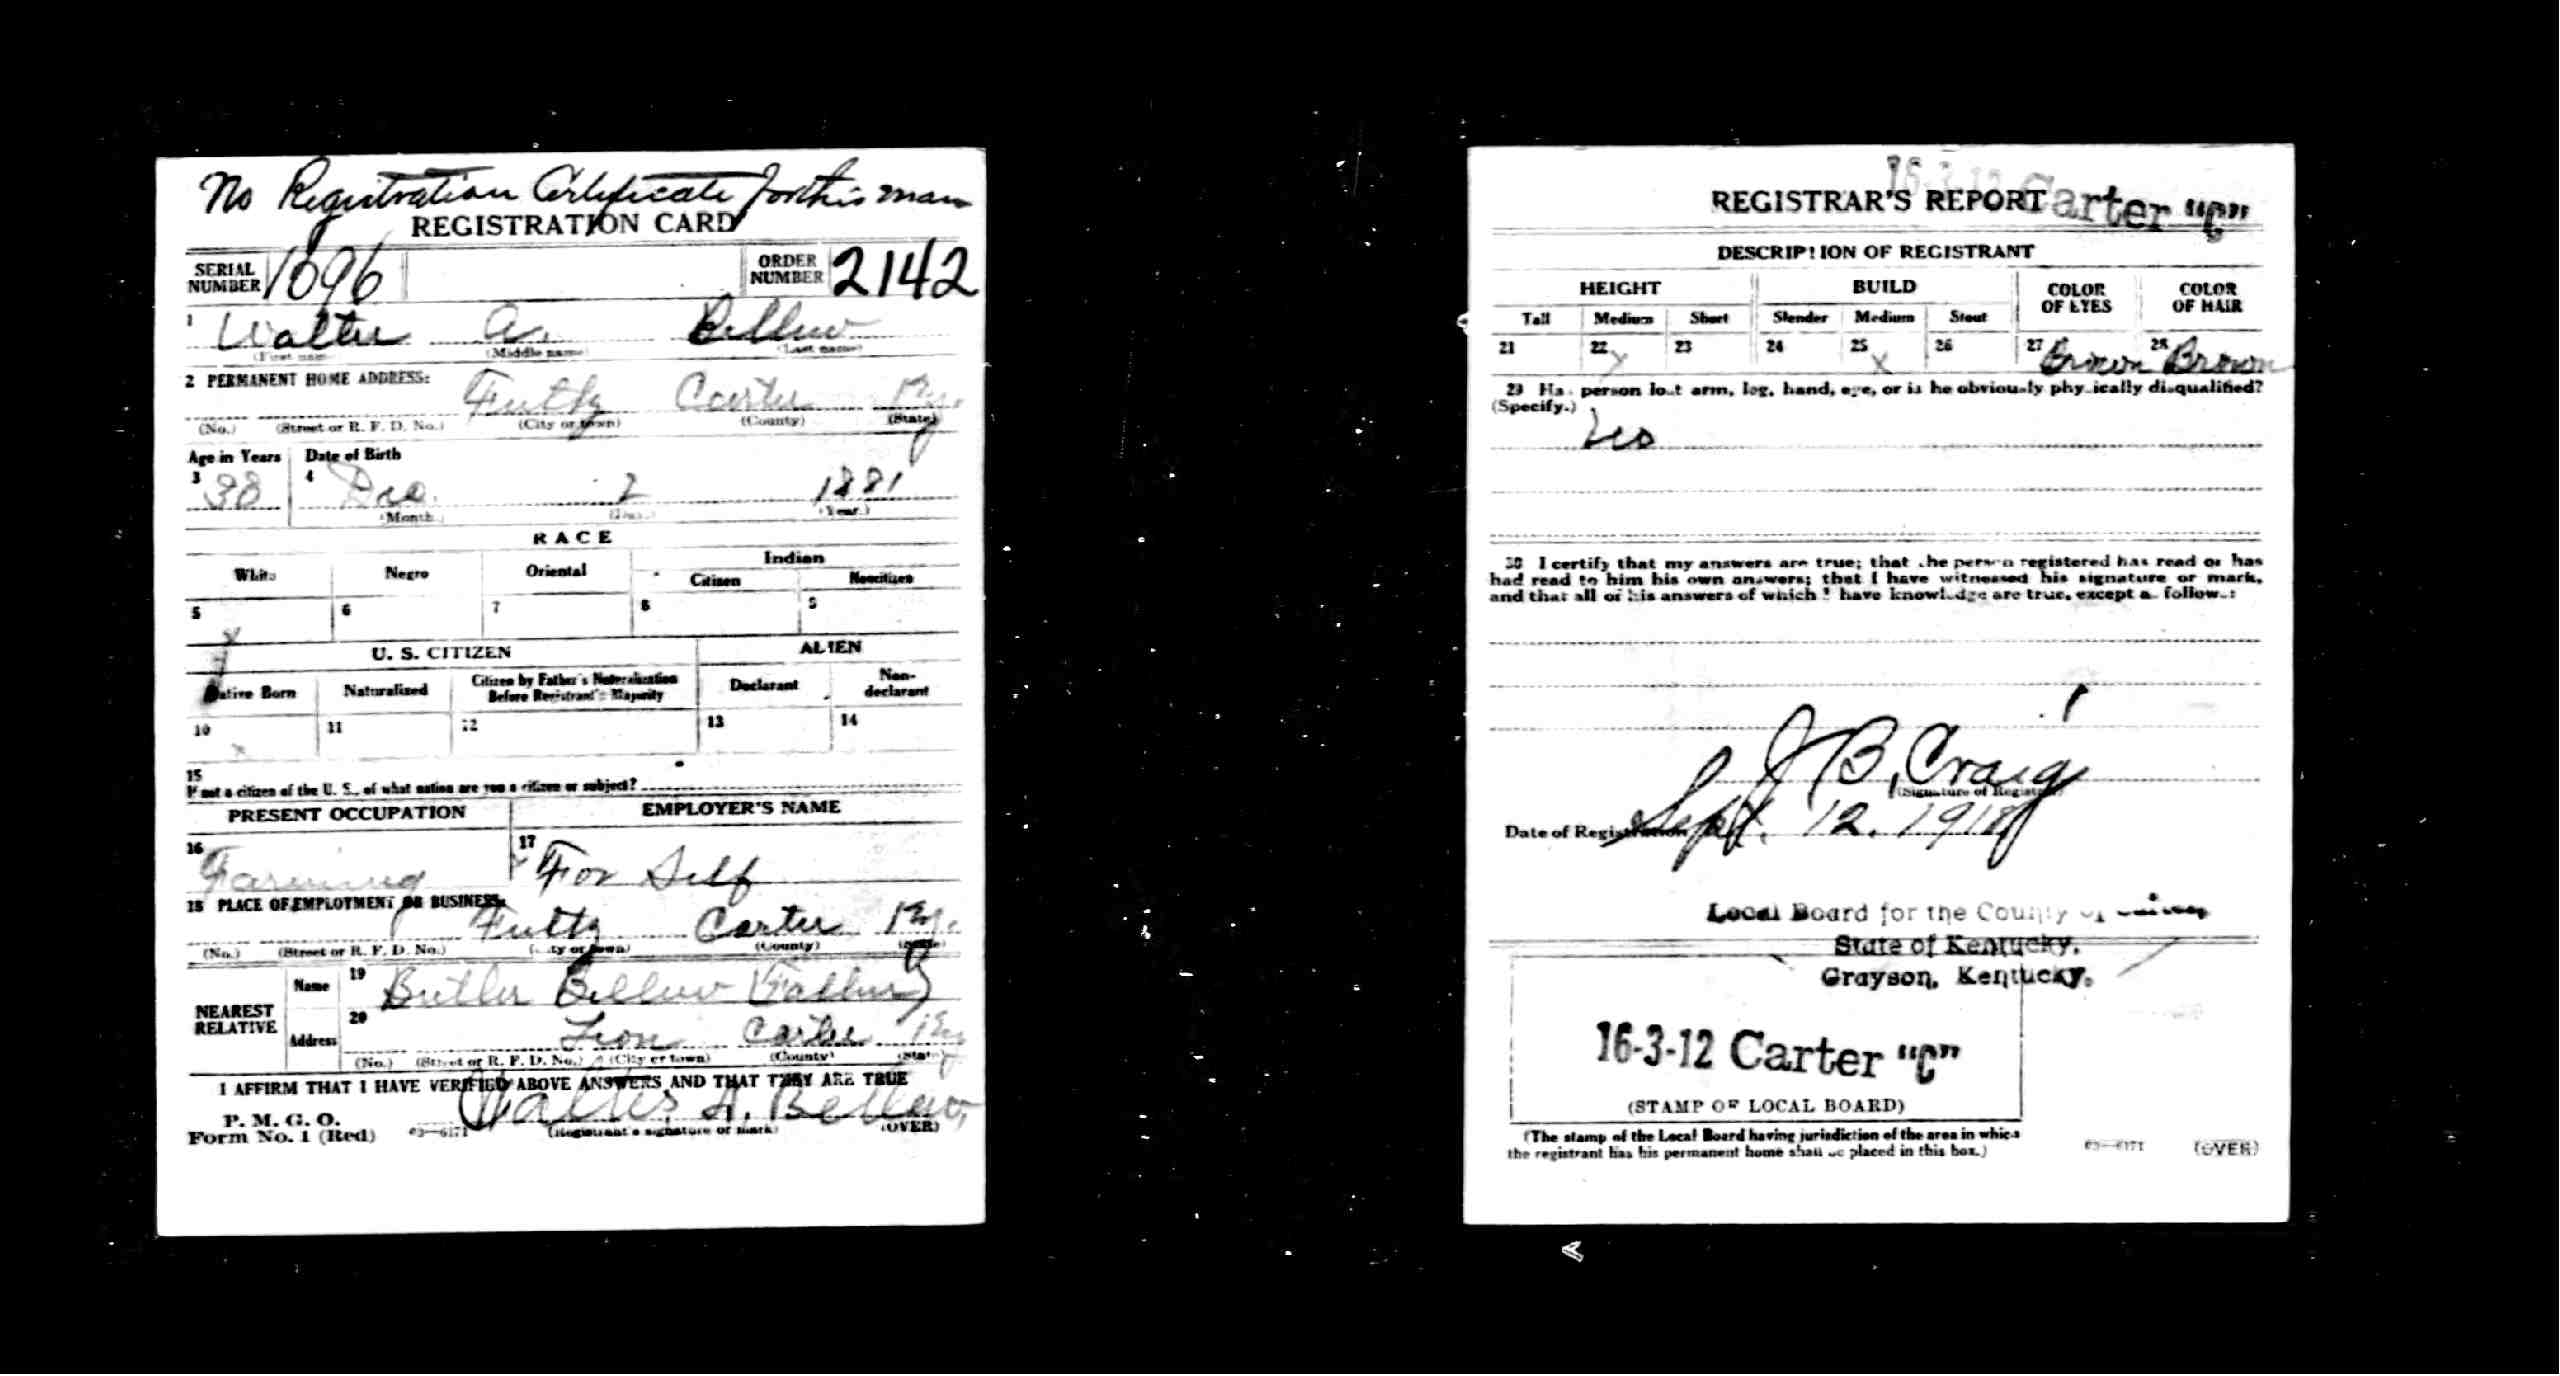 No Registration Certificate for this man
REGISTRATION CARD
SERIAL NUMBER 1696 ORDER NUMBER 2142
1 Walter A. Bellew
(First name) (Middle name) (Last name)
2 PERMANENT HOME ADDRESS:
Fultz Carter Ky.
(No.) (Street or R. F. D. No.) (City or town) (County) (State)
Age in Years Date of Birth
3 38 4 Dec. 2 1881
(Month.) (Day.) (Year.)
RACE
White Negro Oriental Indian
Citizen Noncitizen
5 6 7 8 9
x
U. S. CITIZEN ALIEN
Native Born Naturalized Citizen by Father's Naturalization Before Registrant's Majority Declarant Non-declarant
10 11 12 13 14
x
15
If not a citizen of the U. S., of what nation are you a citizen or subject?
PRESENT OCCUPATION EMPLOYER'S NAME
16 Farming 17 For Self
18 PLACE OF EMPLOYMENT OR BUSINESS:
Fultz Carter Ky.
(No.) (Street or R. F. D. No.) (City or town) (County) (State)
NEAREST RELATIVE Name 19 Butler Bellew (Father)
Address 20 Carter Ky
(No.) (Street or R. F. D. No.) (City or town) (County) (State)
I AFFIRM THAT I HAVE VERIFIED ABOVE ANSWERS AND THAT THEY ARE TRUE
P. M. G. O.
Form No. 1 (Red) 03—6171 Walter A. Bellew
(Registrant's signature or mark) (OVER)
16-3-12 Carter "C"
REGISTRAR'S REPORT
DESCRIPTION OF REGISTRANT
HEIGHT BUILD COLOR OF EYES COLOR OF HAIR
Tall Medium Short Slender Medium Stout
21 22 x 23 24 25 x 26 27 Brown 28 Brown
29 Has person lost arm, leg, hand, eye, or is he obviously physically disqualified?
(Specify.)
30 I certify that my answers are true; that the person registered has read or has
had read to him his own answers; that I have witnessed his signature or mark,
and that all of his answers of which I have knowledge are true, except as follows:
J B, Craig
(Signature of Registrar)
Date of Registration Sept. 12. 1918
Local Board for the County of Carter
State of Kentucky.
Grayson, Kentucky.
16-3-12 Carter "C"
(STAMP OF LOCAL BOARD)
(The stamp of the Local Board having jurisdiction of the area in which
the registrant has his permanent home shall be placed in this box.)
03—6171 (OVER)